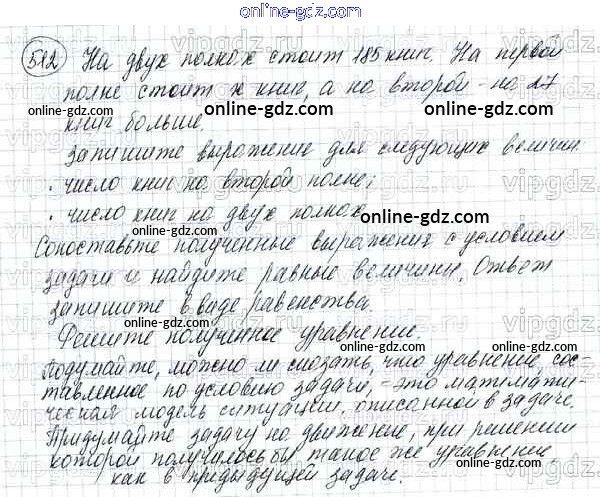 online-gdz.com
512 На двух полках стоит 185 книг. На первой
полке стоит х книг, а на второй - на 27
online-gdz.com online-gdz.com
книг больше.
Запишите выражение для следующих величин:
· число книг на второй полке;
online-gdz.com
· число книг на двух полках.
online-gdz.com
Сопоставьте полученные выражения с условием
задачи и найдите равные величины. Ответ
online-gdz.com
запишите в виде равенства.
online-gdz.com
Решите полученное уравнение.
online-gdz.com
Подумайте, можно ли сказать, что уравнение, сос-
тавленное по условию задачи, - это математи-
ческая модель ситуации, описанной в задаче.
online-gdz.com
Придумайте задачу на движение, при решении
которой получилось бы такое же уравнение
как в предыдущей задаче.
online-gdz.com